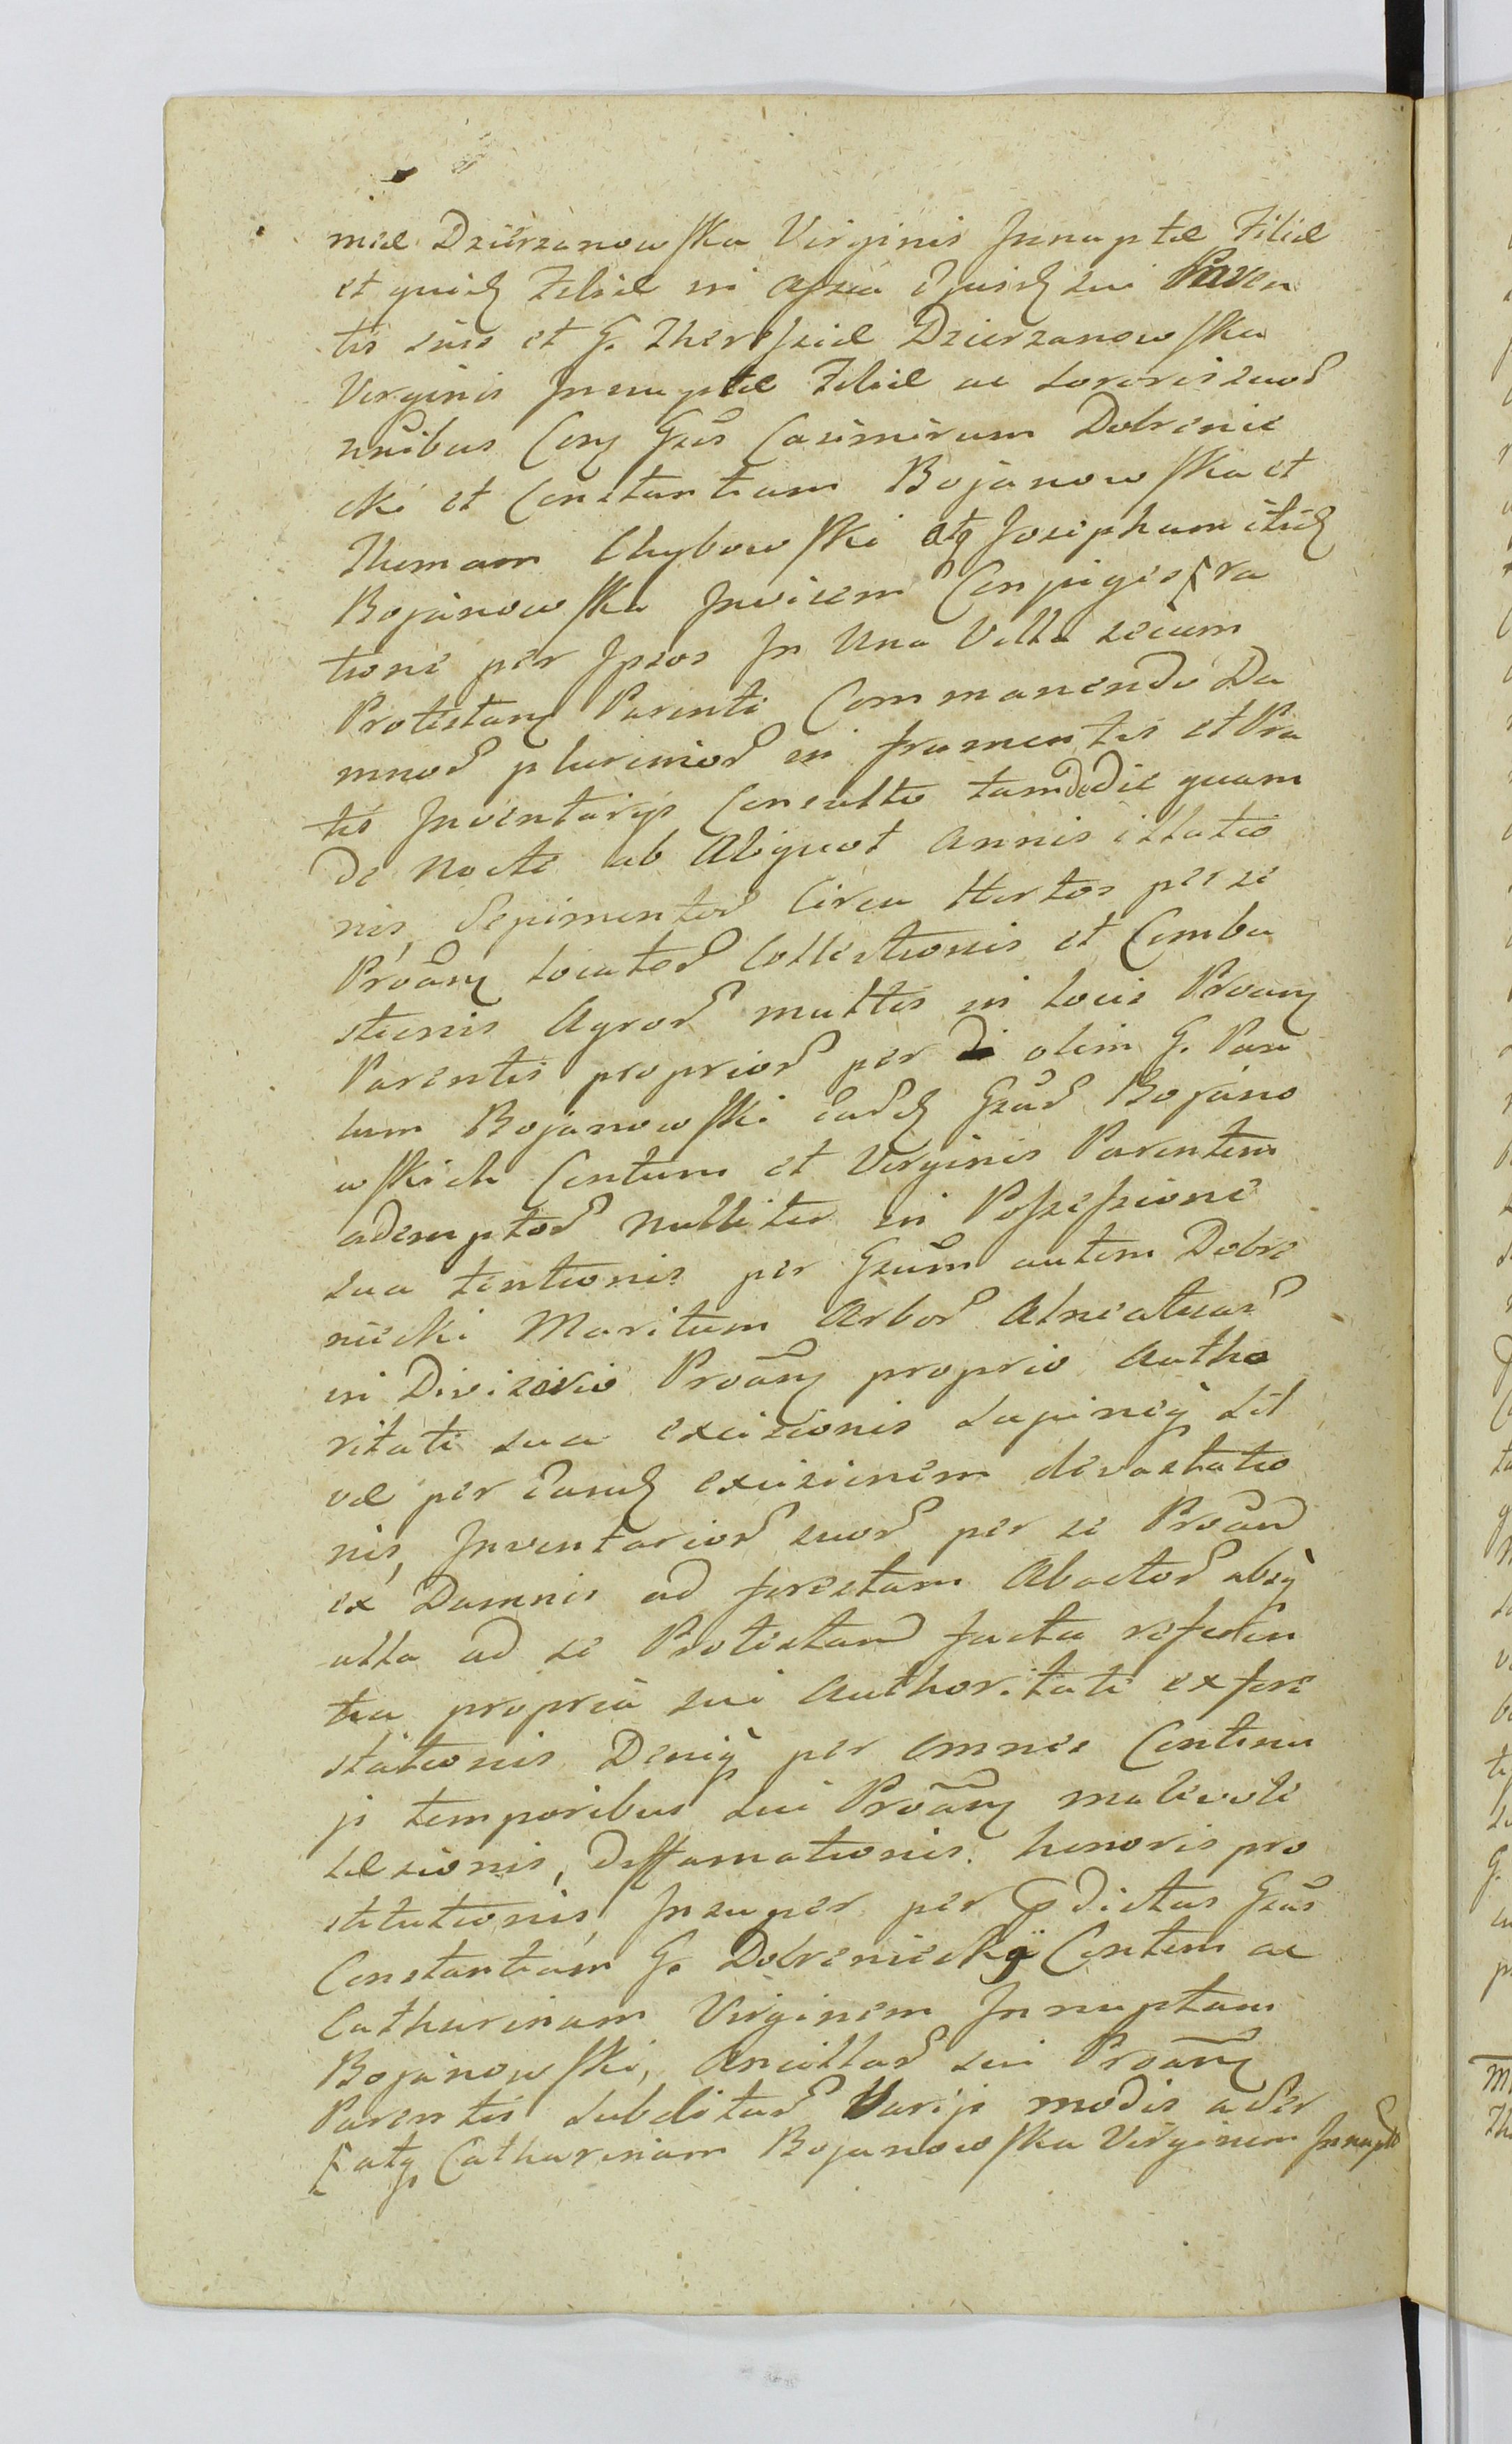 miæ Dzierzanowska Virginis Innuptæ Filiæ
et quidẽ Filiæ in assia ejusdẽ sui Paren
tis suis et G. Theressiæ Dzierzanowska
Virginis Innuptæ Filiæ ac sororis suoꝝ
Conj Gsũs Casimirum Dobrenie
cki et Constantiam Bojanowska et
Thomam Chybowski atq Josephum itidẽ
Bojanowska Invicem Conpigis ra
tione per Ipsos In Una Villa secum
Protestanẽ Parenti Commanendo Da
mnoꝝ plurimoꝝ in frumentis et Pra
tis Inventarijs Consulto tam de die quam
de nocte ab Aliquot Annis illatio
nis, Sepimentoꝝ Circa Hortos per se
Proãnẽ locatoꝝ Collectionis et Combu
stionis Agroꝝ multis in locis Proanẽ
Parentis proprioꝝ per olim G. Pau
lum Bojanowski eoꝝdẽ Gsoꝝ Bojano
wskich Contum et Virginis Parentem
ademptoꝝ nulliter in Possessione
sua tentionis per Gsum autem Dobre
niecki Maritum Arboꝝ Alneatuaꝝ
in Divisorio Proãnẽ proprio Autho
ritate sua excisionis Lupineq̃ Sil
væ per Eandẽ excisionem devastatio
nis, Inventarioꝝ suoꝝ per se Proãnꝺ
ex Damnis ad forestam Abactoꝝ absq̃
ulla ad se Protestanꝺ facta refectien
tia propria sui Authoritate exfore
stationis Deniq̃ per omnes Continu
ji temporibus sui Proãnẽ malivoli
læsionis, diffamationis honoris pro
stitutionis, Insuper per p̃dictas Gsas
Constantiam G. Dobrenieckÿ Contem ac
Catharinam Virginem Innuptam
Bojanowski, Ancillaꝝ sui Proãnẽ
Parentis subditaꝝ Varijs modis ader
[atq Catharinam Bojanowska Virginem Innupto